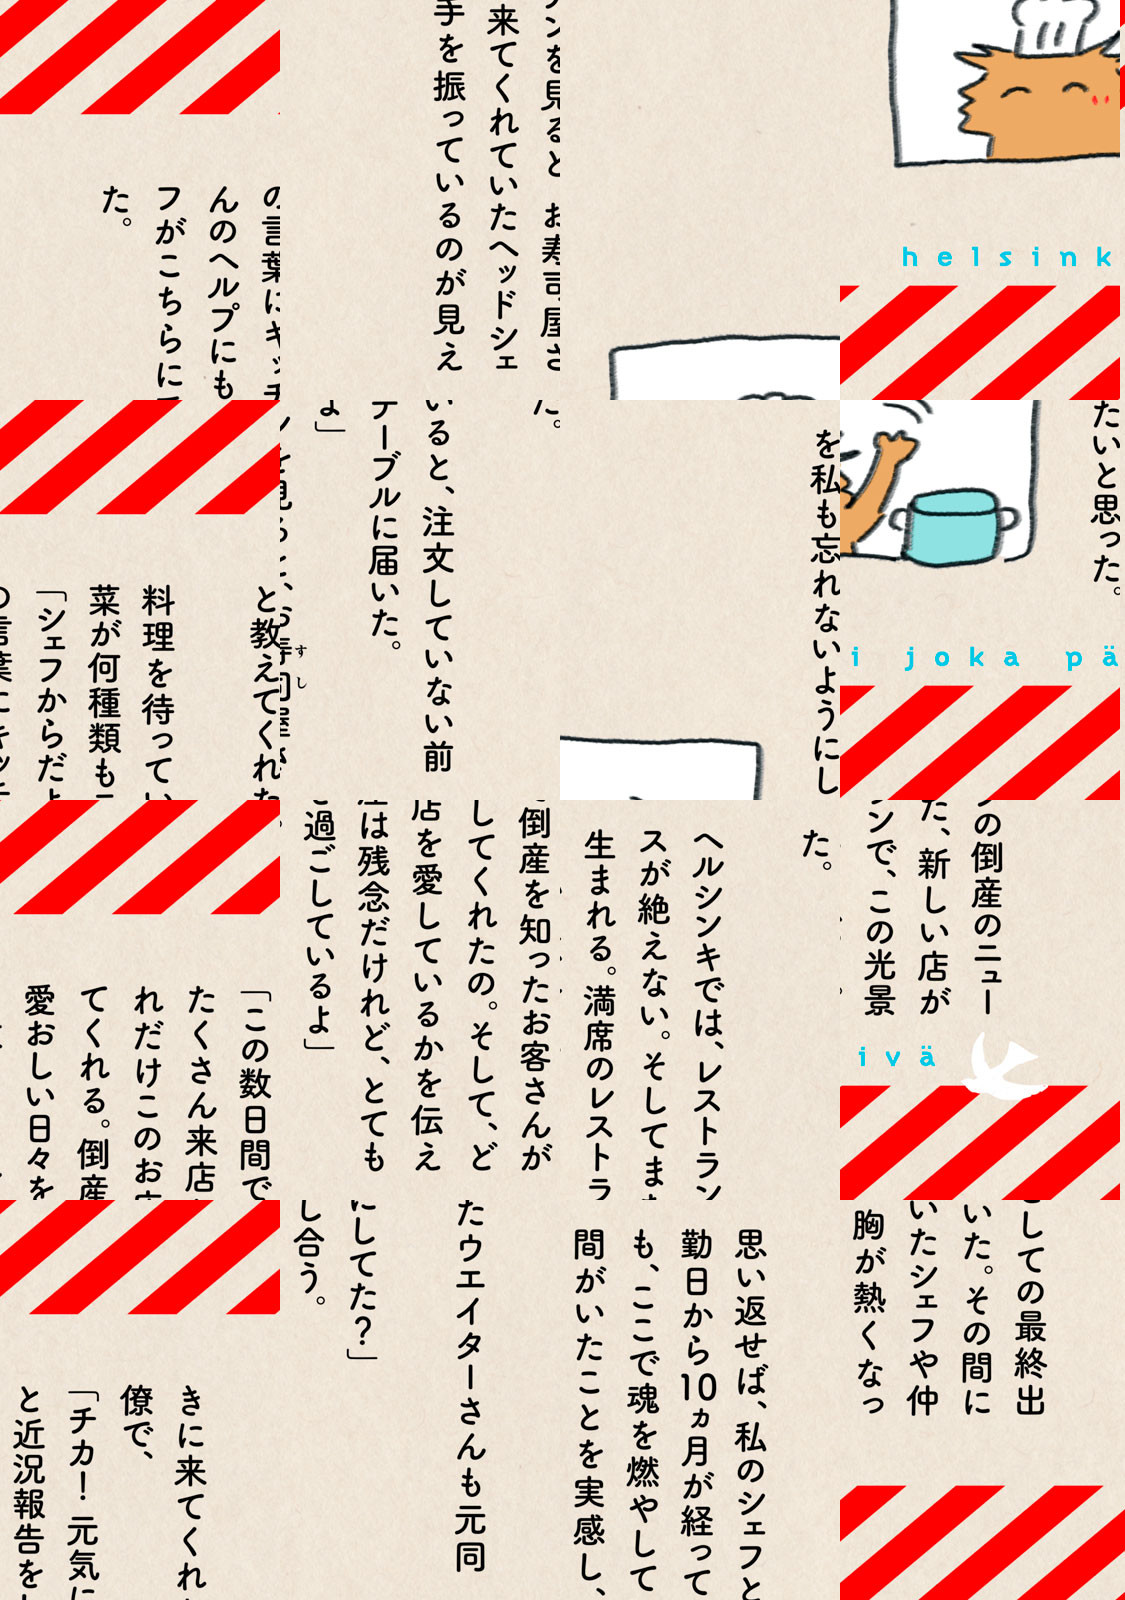 の言葉にキッチ
んのヘルプにも
フがこちらに
た。
ンを見ると お寿司屋さ
来てくれていたヘッドシェ
手を振っているのが見え
helsink
と教えてくれた。
料理を待ってい
菜が何種類も
「シェフからだよ
の言葉にキッチ
た。
いると、注文していない前
テーブルに届いた。
よ」
を私も忘れないようにし
たいと思った。
i joka pä
「この数日間で
たくさん来店
れだけこのお店
てくれる。倒産
愛おしい日々を
倒産を知ったお客さんが
してくれたの。そして、ど
店を愛しているかを伝え
は残念だけれど、とても
過ごしているよ」
た。
ヘルシンキでは、レストラン
スが絶えない。そしてまた
生まれる。満席のレストラ
の倒産のニュー
た、新しい店が
ンで、この光景
ivä
きに来てくれ
僚で、
「チカ！元気に
と近況報告をし
たウエイターさんも元同
にしてた？」
し合う。
思い返せば、私のシェフと
勤日から10ヵ月が経って
も、ここで魂を燃やして
間がいたことを実感し、
しての最終出
いた。その間に
いたシェフや仲
胸が熱くなっ